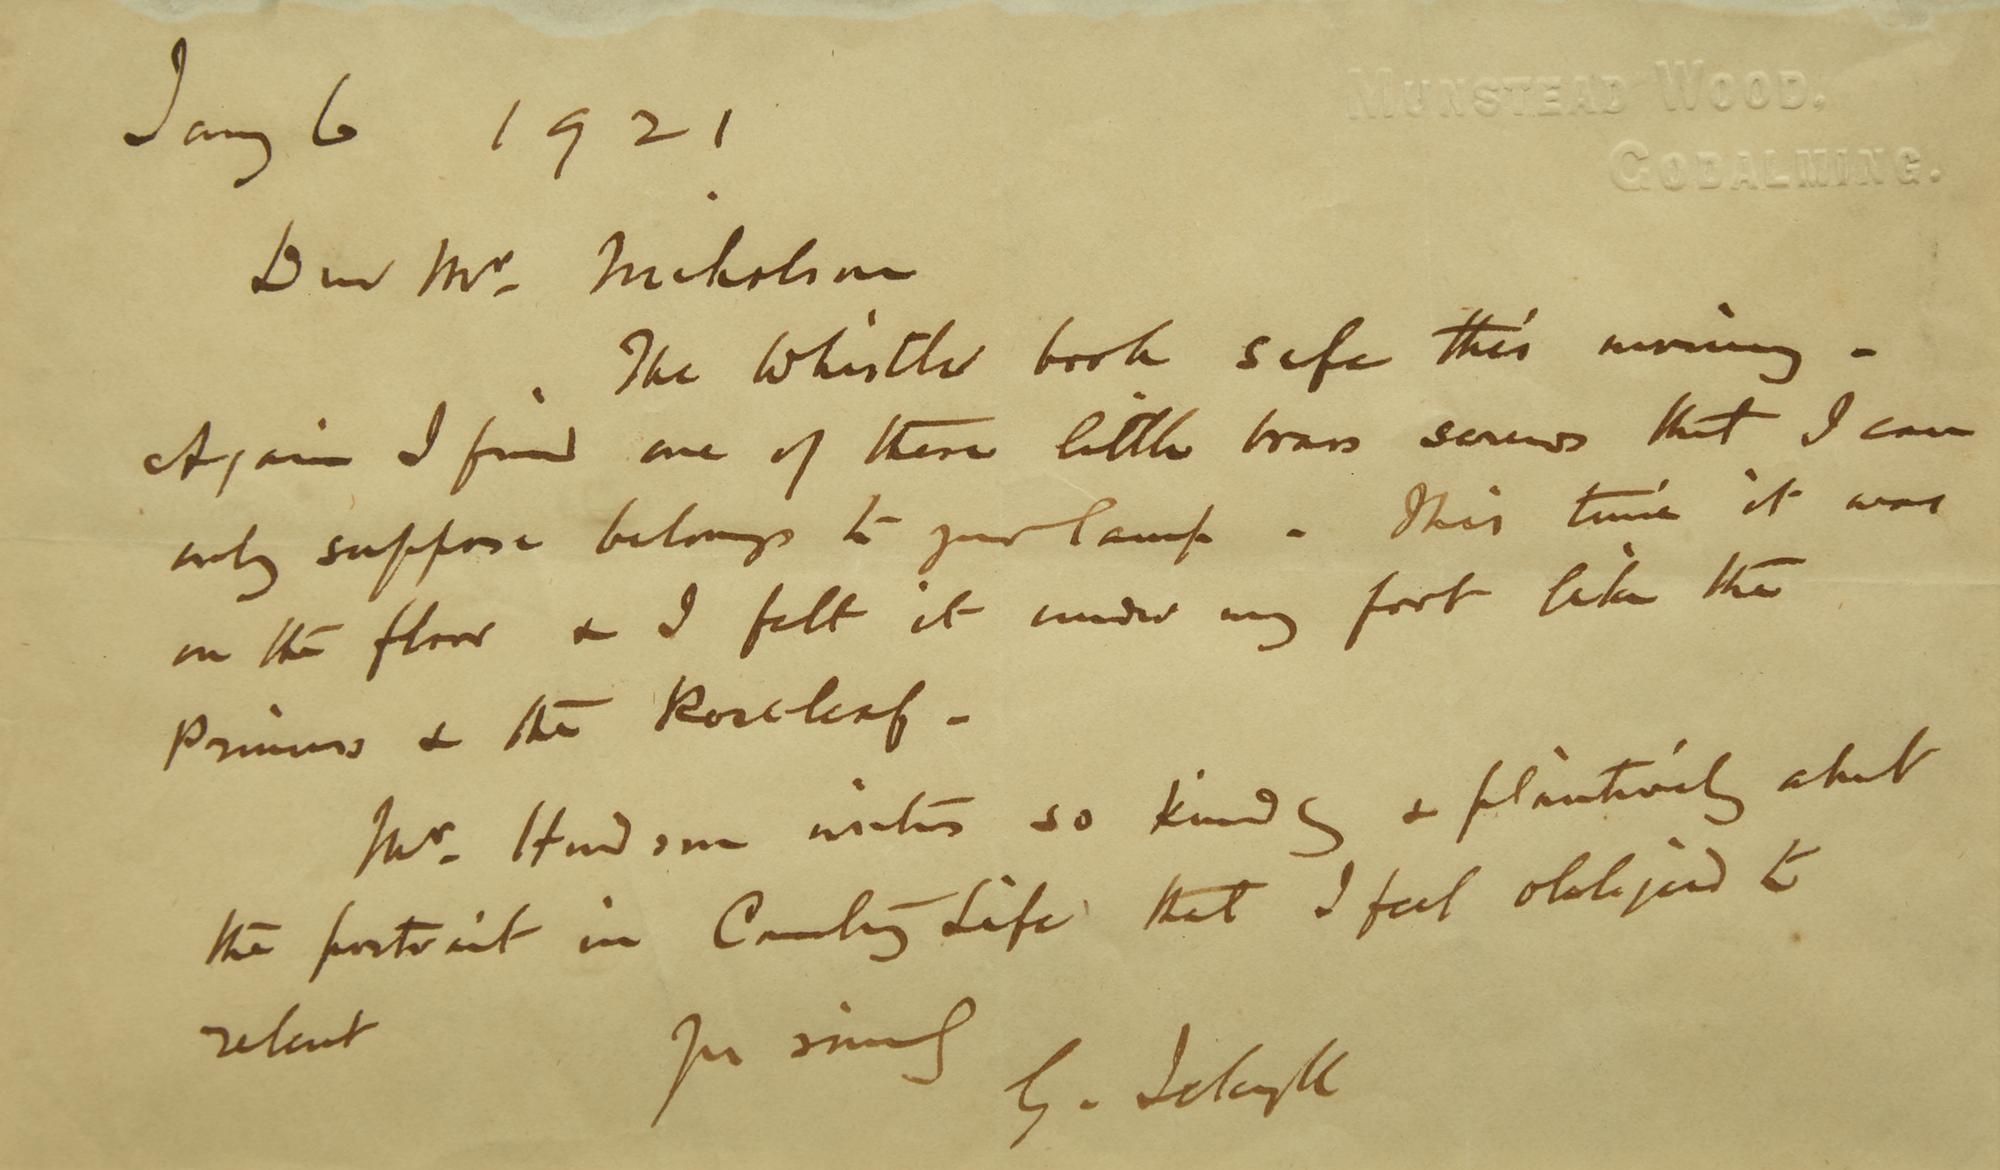 MUNSTEAD WOOD.
GODALMING.
Jany 6 1921
Dear Mr. Nicholson
The Whistler book safe this morning -
Again I find one of these little brass screws that I can
only suppose belongs to your lamp - This time it was
on the floor & I felt it under my foot like the
Princess & the Roseleaf -
Mr. Hudson writes so kindly & plaintively about
the portrait in Country Life that I feel obliged to
relent
Yrs sincerely
G. Jekyll